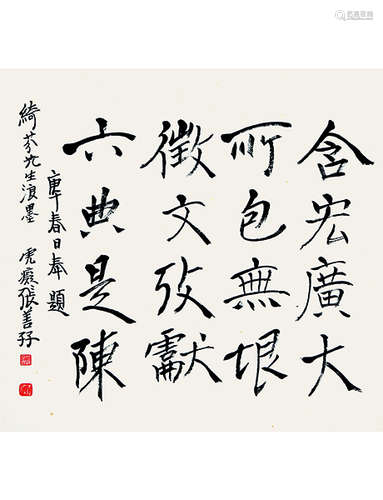 含宏廣大
所包無垠
徵文攷獻
六典是陳
庚午春日奉題
綺芬先生浪墨 虎癡張善孖